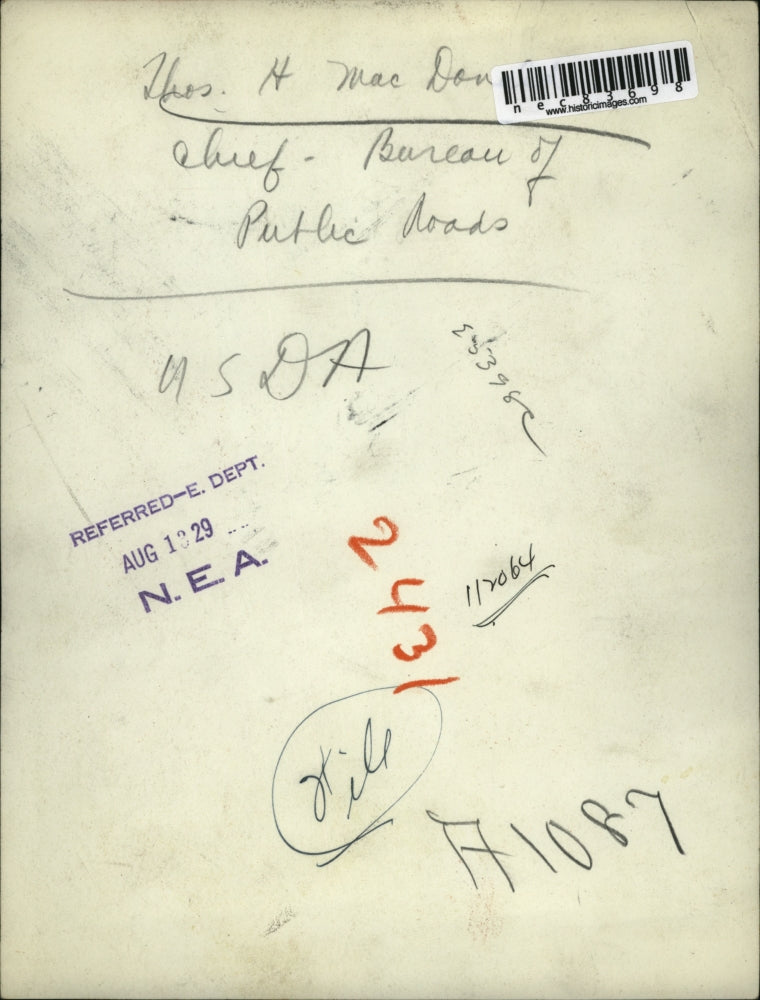 Thos. H Mac Don
nec83698
www.historicimages.com
Chief - Bureau of
Public Roads
USDA
REFERRED—E. DEPT.
AUG 13 29
N. E. A.
2431
112064
File
A1087